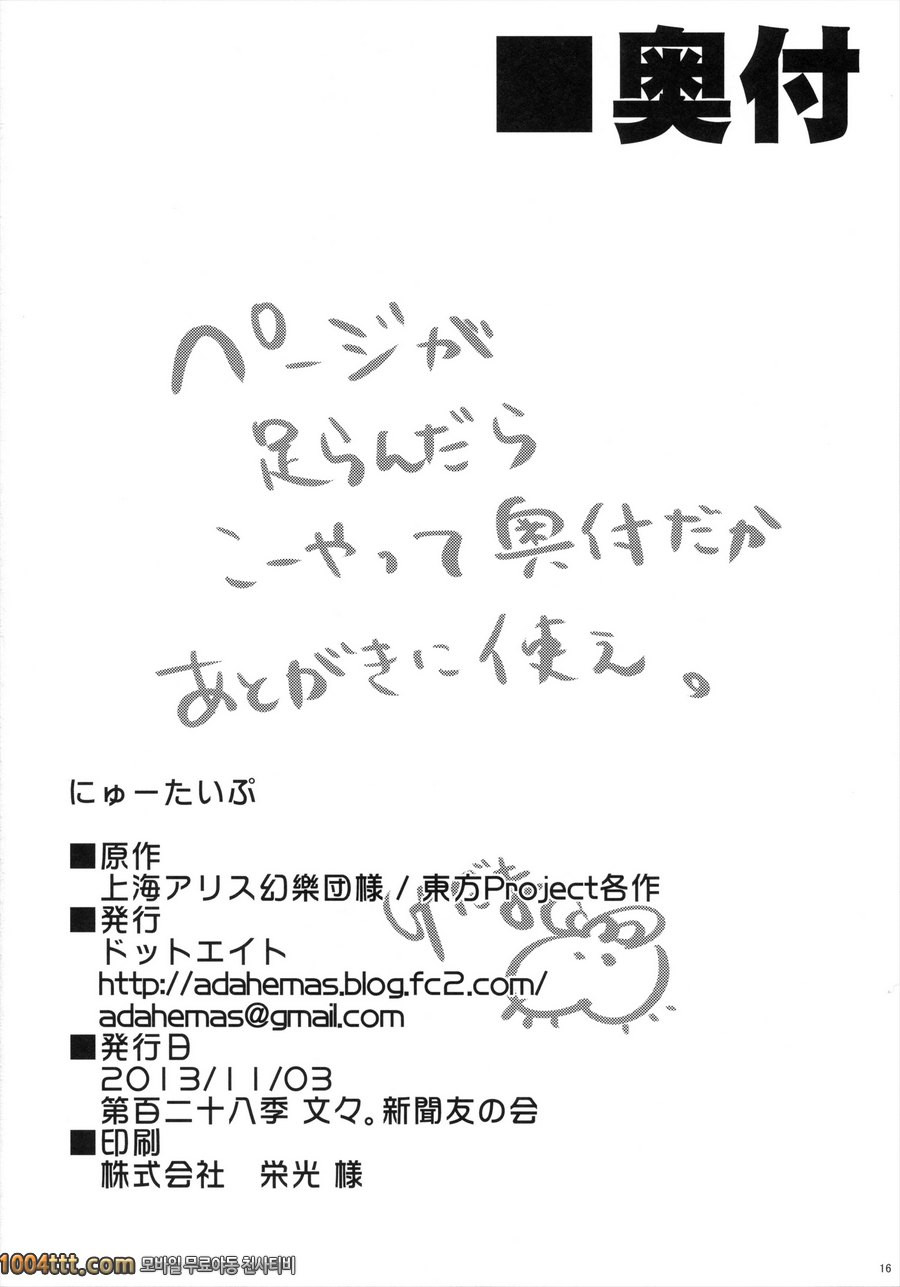 ■奥付
ページが
足らんだら
こーやって奥付だか
あとがきに使え。
にゅーたいぷ
■原作
上海アリス幻樂団様 / 東方Project各作
■発行
ドットエイト
http://adahemas.blog.fc2.com/
adahemas@gmail.com
■発行日
2013/11/03
第百二十八季 文々。新聞友の会
■印刷
株式会社　栄光 様
1004ttt.com 모바일 무료야동 천사티비
16